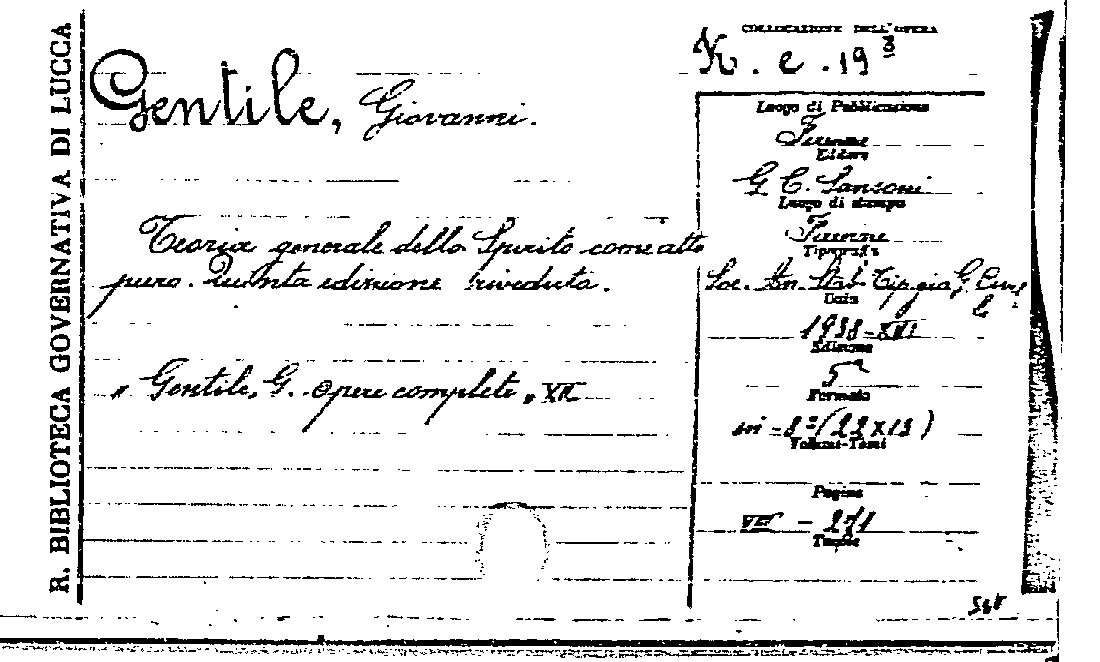 R. BIBLIOTECA GOVERNATIVA DI LUCCA
COLLOCAZIONE DELL'OPERA
K. e. 19 3
Gentile, Giovanni.
Teoria generale dello Spirito come atto
puro. Quinta edizione riveduta.
" Gentile, G. Opere complete "
Luogo di Pubblicazione
Firenze
Editore
G C. Sansoni
Luogo di stampa
Firenze
Tipografia
Soc. An. Stab. Tip. già G. Civel
li
Data
1938-XVI
Edizione
5a
Formato
in-8° (22x13)
Volumi-Tomi
Pagine
VII - 271
Tavole